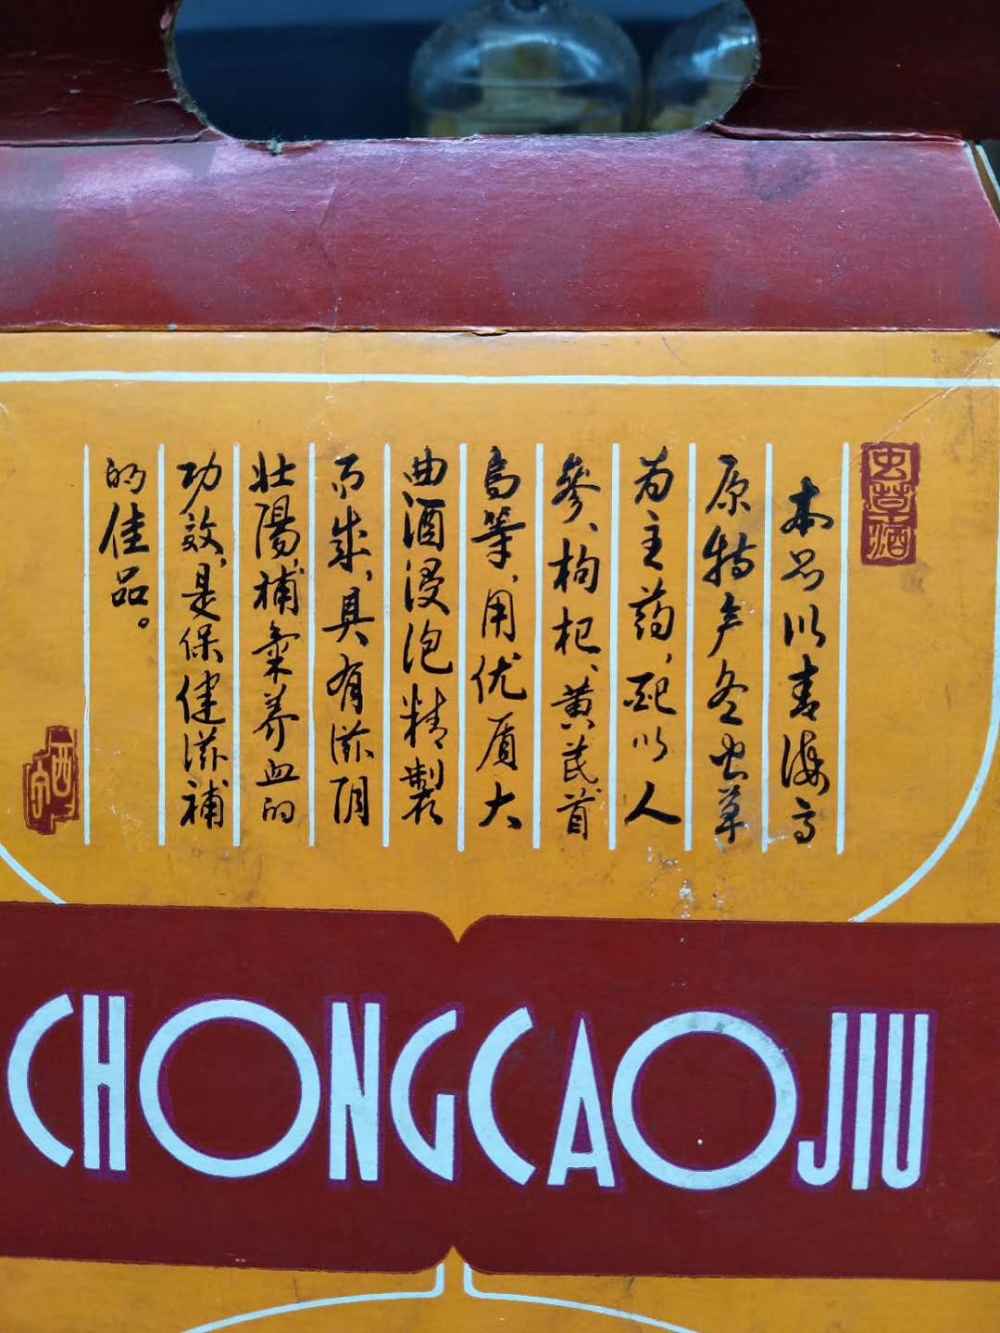 虫草酒
本品以青海高
原特产冬虫草
为主药，配以人
参、枸杞、黄芪、首
乌等，用优质大
曲酒浸泡精製
而成，具有滋阴
壮陽，補氣养血的
功效，是保健滋補
的佳品。
CHONGCAOJIU